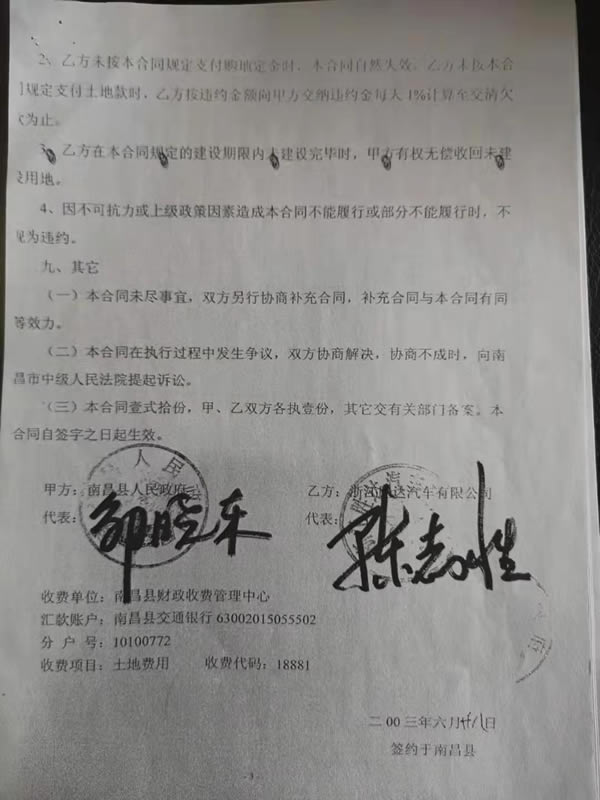 2、乙方未按本合同规定支付购地定金时，本合同自然失效。乙方未按本合
规定支付土地款时，乙方按违约金额向甲方交纳违约金每天1%计算至交清欠
为止。
3、乙方在本合同规定的建设期限内未建设完毕时，甲方有权无偿收回未建
设用地。
4、因不可抗力或上级政策因素造成本合同不能履行或部分不能履行时，不
视为违约。
九、其它
（一）本合同未尽事宜，双方另行协商补充合同，补充合同与本合同有同
等效力。
（二）本合同在执行过程中发生争议，双方协商解决，协商不成时，向南
昌市中级人民法院提起诉讼。
（三）本合同壹式拾份，甲、乙双方各执壹份，其它交有关部门备案。本
合同自签字之日起生效。
甲方：南昌县人民政府
乙方：浙江 达汽车有限公司
代表：
代表：
收费单位：南昌县财政收费管理中心
汇款账户：南昌县交通银行 63002015055502
分 户 号：10100772
收费项目：土地费用 收费代码：18881
二00三年六月廿八日
签约于南昌县
- 3 -